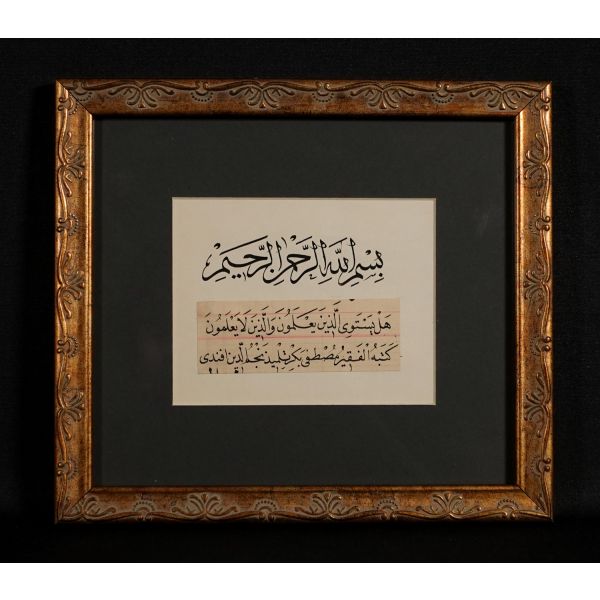 بِسْمِ اللّٰهِ الرَّحْمٰنِ الرَّحِيمِ
هَلْ يَسْتَوِى الَّذِينَ يَعْلَمُونَ وَالَّذِينَ لَا يَعْلَمُونَ
كَتَبَهُ الْفَقِيرُ مُصْطَفٰى بَكْر تِلْمِيذ نَجْمُ الدِّين افندى